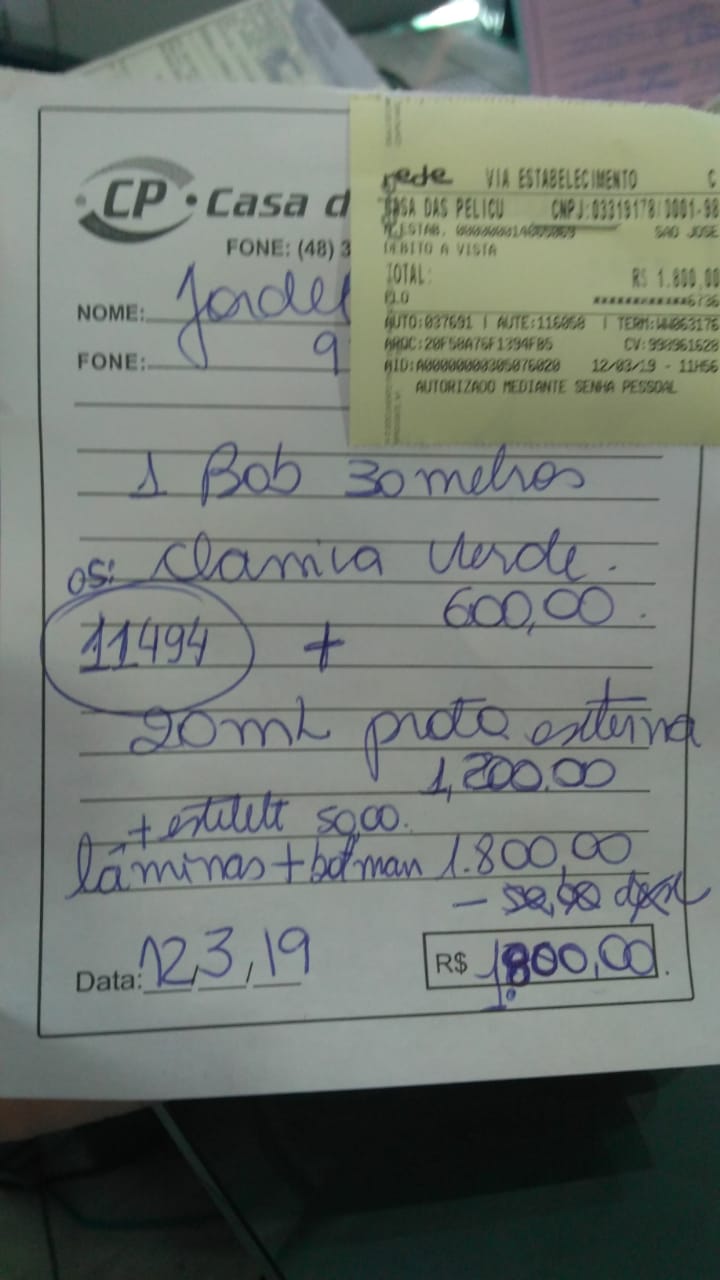 CP • Casa d
FONE: (48) 3
NOME: Jordel
FONE: 9
rede VIA ESTABELECIMENTO C
CASA DAS PELICU CNPJ:03319178/0001-98
SAO JOSE
DEBITO A VISTA
TOTAL: R$ 1.800,00
ELO ************6736
AUTO:037691 | AUTE:116058 | TERM:WW063176
ARQC:20F58A76F1394FB5 CV:990961628
AID:A0000000305076020 12/03/19 - 11H56
AUTORIZADO MEDIANTE SENHA PESSOAL
1 Bob 30 metros
verde.
OS: 600,00.
11494 +
20mL preto externa
1,200,00
+ estilete 50,00.
lâminas + batman 1.800,00
Data: 12,3,19 R$ 1.800,00.